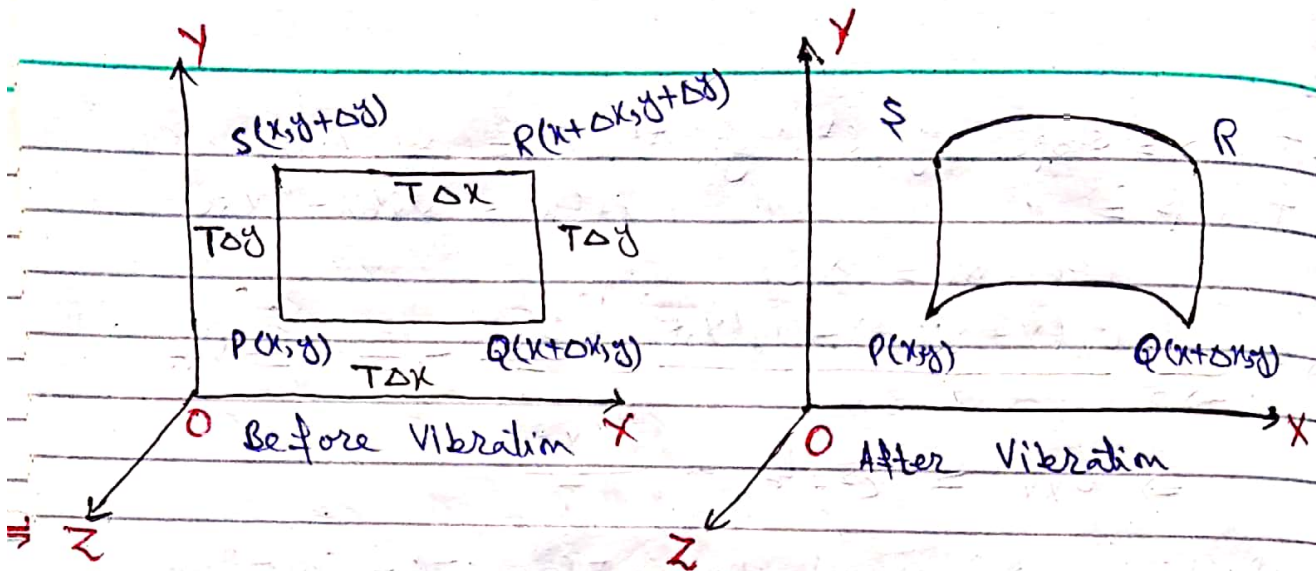 Y
S(x,y+Δy) R(x+Δx,y+Δy)
TΔx
TΔy TΔy
P(x,y) Q(x+Δx,y)
TΔx
O X
Before Vibration
Z
Y
S R
P(x,y) Q(x+Δx,y)
O X
After Vibration
Z